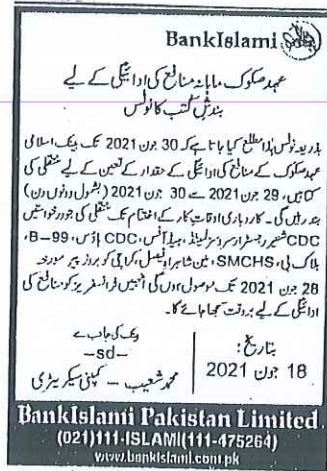 BankIslami
عہد صکوک ماہانہ منافع کی ادائیگی کے لیے
بندش کتب کا نوٹس
بذریعہ نوٹس ہذا مطلع کیا جاتا ہے کہ 30 جون 2021 تک بینک اسلامی
عہد صکوک کے منافع کی ادائیگی کے حقدار کے تعین کے لیے منتقلی کی
کتابیں، 29 جون 2021 سے 30 جون 2021 (بشمول دونوں دن)
بند رہیں گی۔ کاروباری اوقات کار کے اختتام تک منتقلی کی جو درخواستیں
CDC شیئر رجسٹرار سروسز لمیٹڈ، ہیڈ آفس، CDC ہاؤس، 99-B،
بلاک بی، SMCHS، مین شاہراہ فیصل، کراچی کو بروز پیر مورخہ
28 جون 2021 تک موصول ہوں گی انہیں ٹرانسفریز کو منافع کی
ادائیگی کے لیے بروقت سمجھا جائے گا۔
بتاریخ:
18 جون 2021
بینک کی جانب سے
-sd-
محمد شعیب – کمپنی سیکریٹری
BankIslami Pakistan Limited
(021)111-ISLAMI(111-475264)
www.bankislami.com.pk